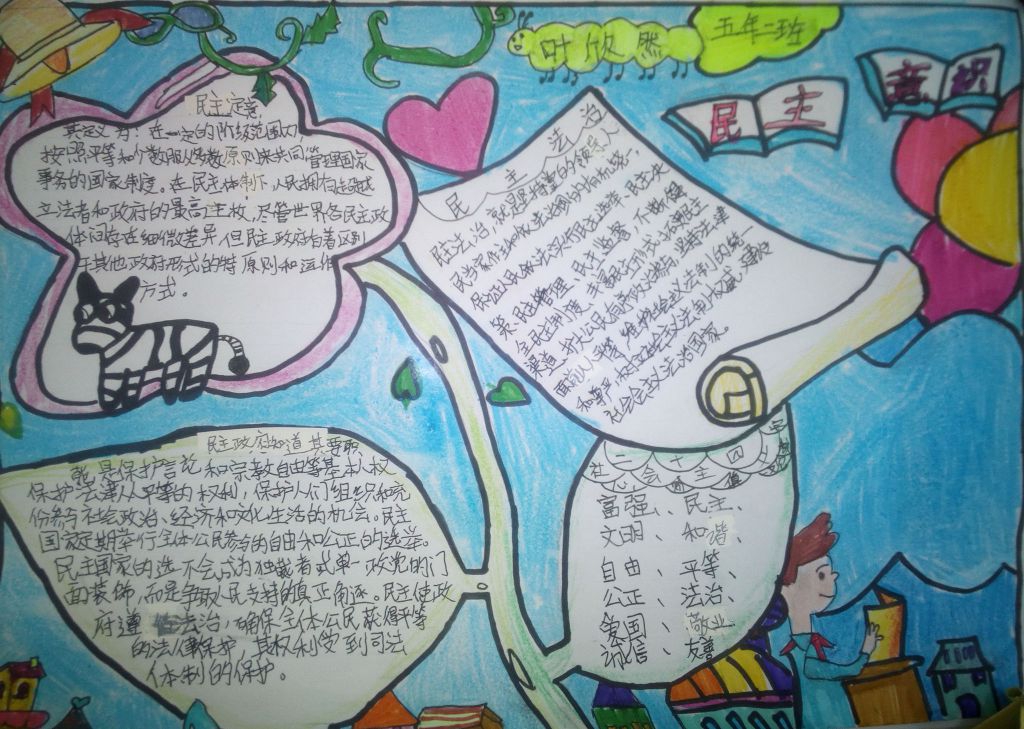 叶欣然
五年二班
民主
意识
民主定意
其定义为：在一定的阶级范围内
按照平等和少数服从多数原则来共同管理国家
事务的国家制度。在民主体制下，人民拥有超越
立法者和政府的最高主权，尽管世界各民主政
体间存在细微差异，但民主政府有着区别
于其他政府形式的特 原则和运作
方式。
民主法治
民主法治，就是坚持党的领导、人
民当家作主和依法治国的有机统一，
保证人民依法实行民主选举、民主决
策、民主管理、民主监督，不断健
全民主制度，丰富民主形式，拓宽民主
渠道，扩大公民有序政治参与，坚持法律
面前人人平等，维护社会主义法制的统一
和尊严，树立社会主义法制权威，建设
社会主义法治国家。
民主政府知道其要职
能是保护言论和宗教自由等基本人权
保护法津人人平等的权利，保护人们组织和充
份参与社会政治、经济和文化生活的机会。民主
国家定期举行全体公民参与的自由和公正的选举。
民主国家的选不会成为独裁者或单一政党的门
面装饰，而是争取人民支持的真正角逐。民主使政
府遵 法治，确保全体公民获得平等
的法律保护，其权利受到司法
体制的保护。
社会主义
二十四字
价值
富强、民主、
文明、和谐、
自由、平等、
公正、法治、
爱国、敬业
诚信、友善